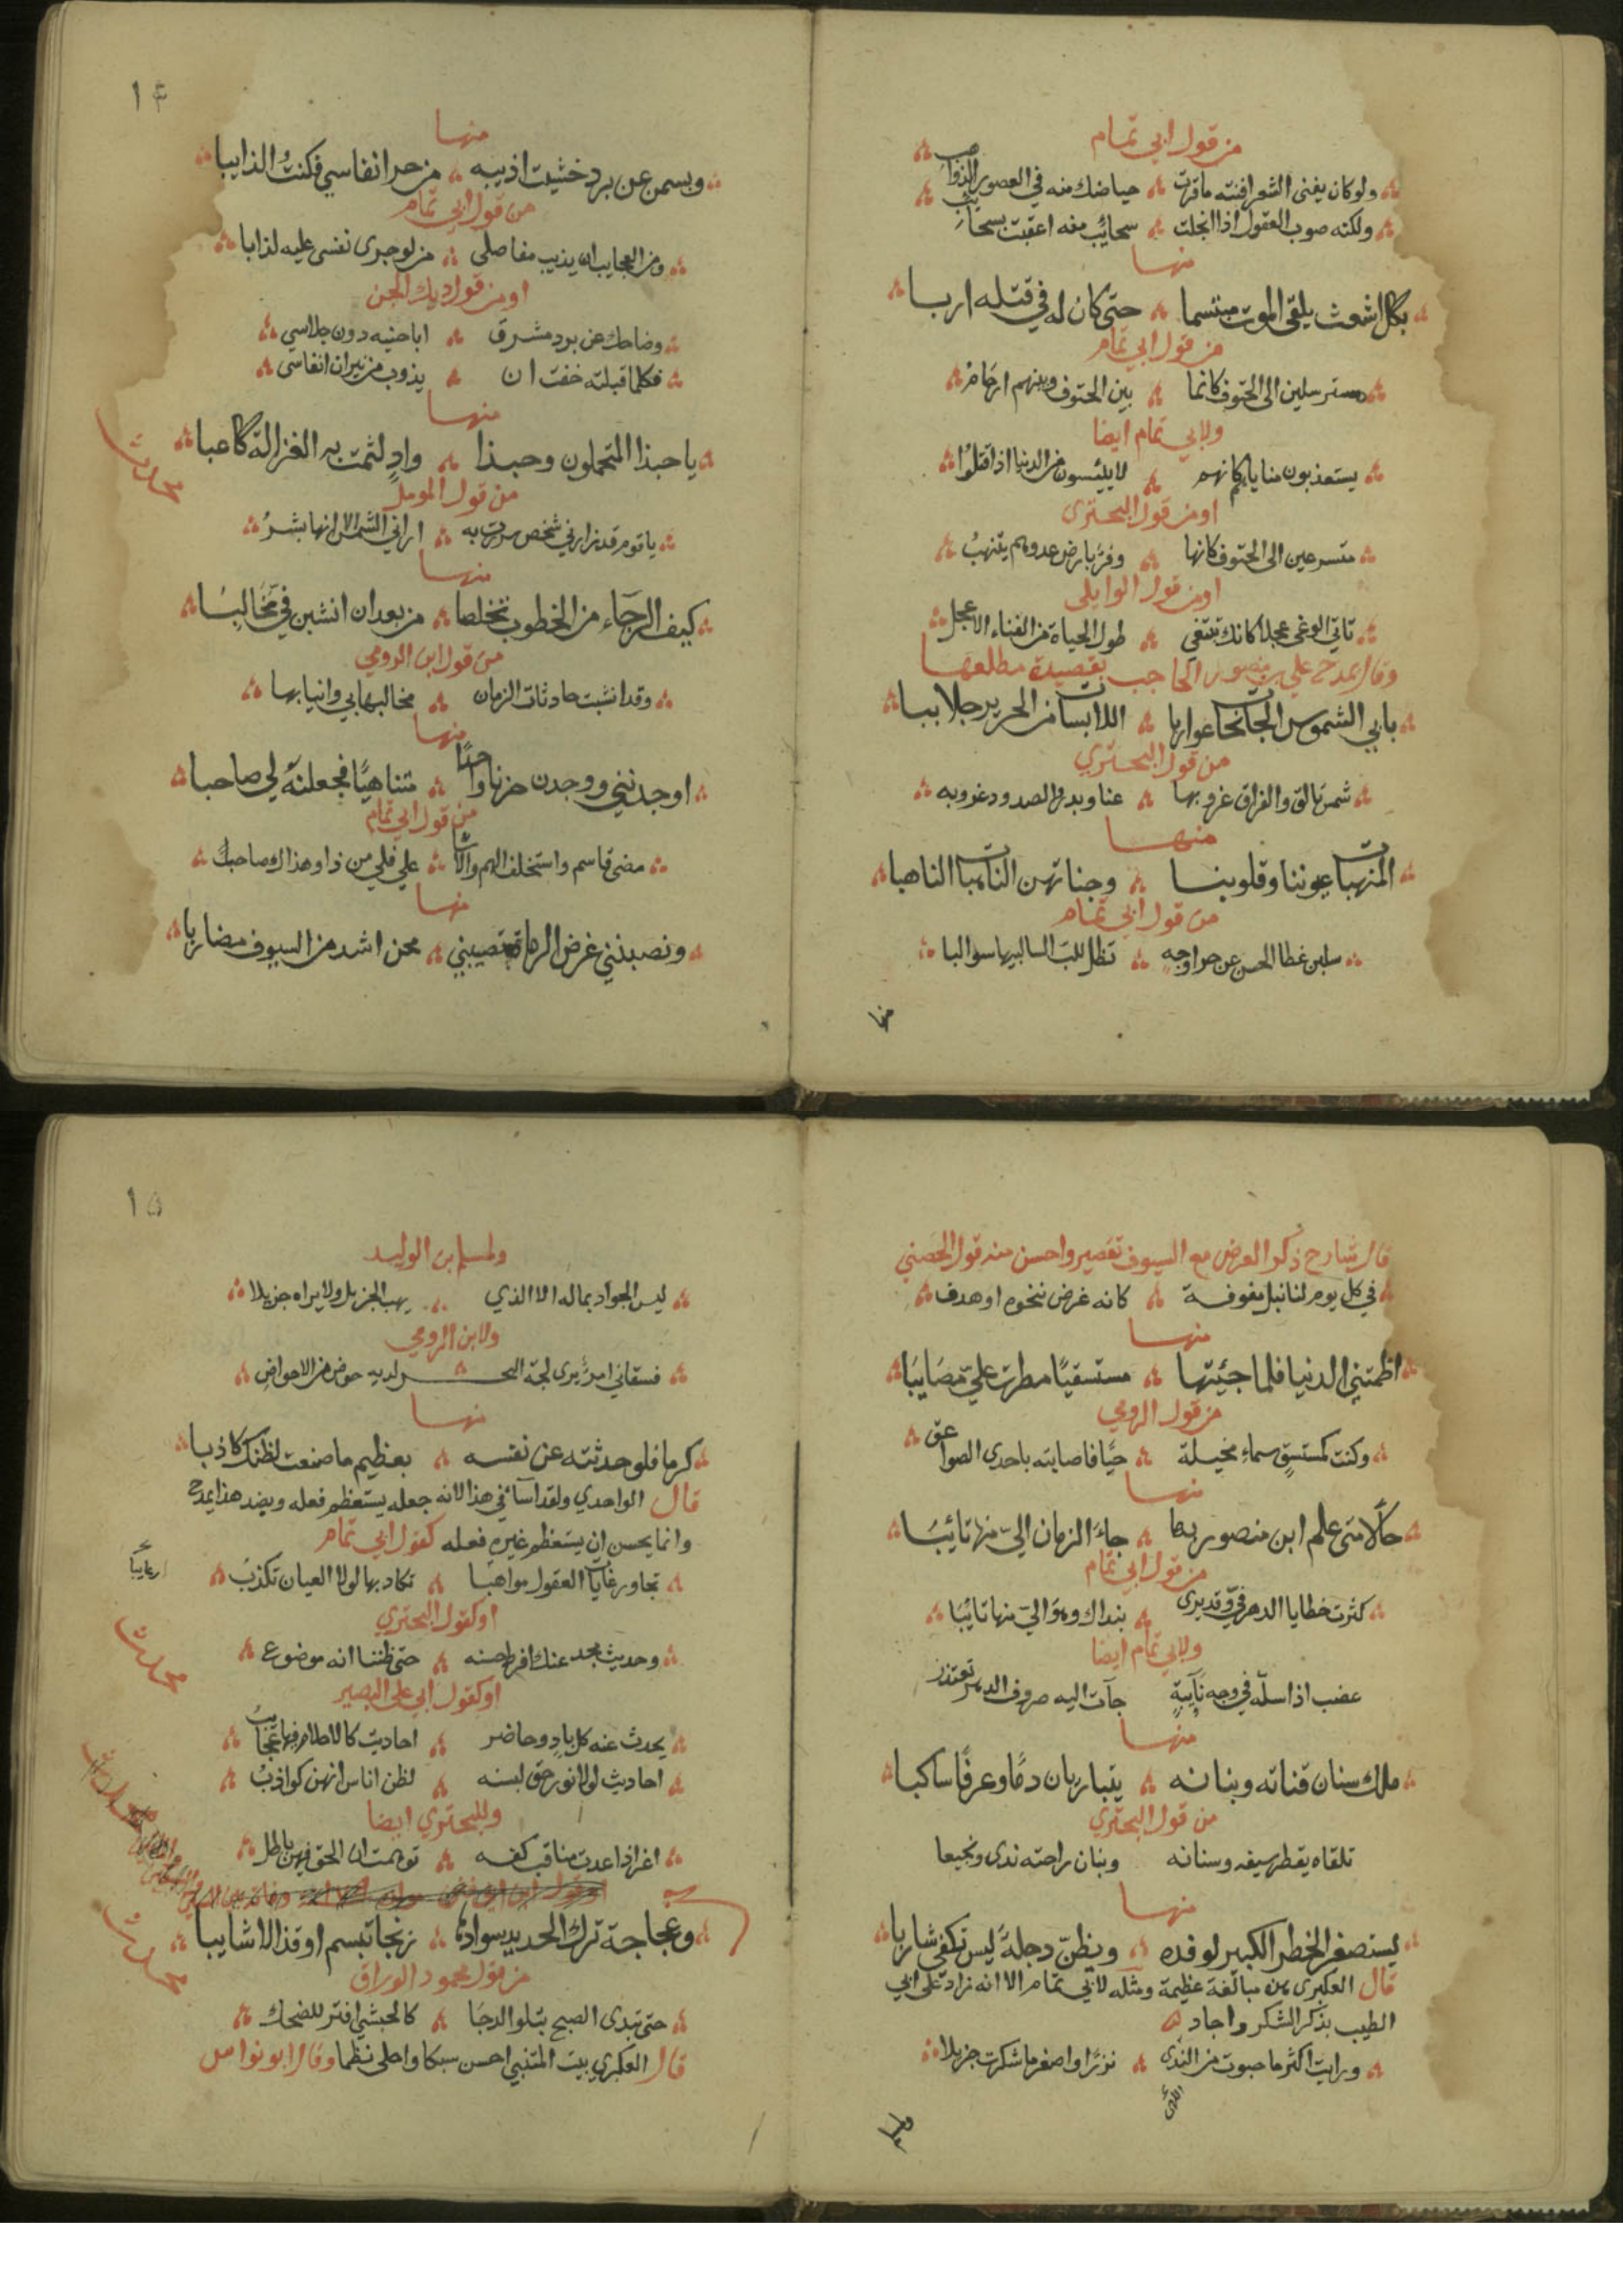 من قول ابي تمام
ولو كان يفنى الشعر افنته ما قرت حياضك منه في العصور الذواهب
ولكنه صوب العقول اذا انجلت سحائب منه اعقبت بسحائب
منها
بكل اشعث يلقى الموت مبتسما حتى كان له في قتله اربا
من قول ابي تمام
مسترسلين الى الحتوف كانما بين الحتوف وبينهم ارحام
ولابي تمام ايضا
يستعذبون مناياهم كانهم لا ييئسون من الدنيا اذا قتلوا
او من قول البحتري
متسرعين الى الحتوف كانها وفر بارض عدوهم يتنهب
او من قول الوايلي
تاتي الوغى عجلا كانك تبتغي طول الحياة من الفناء الاعجل
وقال يمدح علي بن منصور الحاجب بقصيدة مطلعها
بابي الشموس الجانحات غواربا اللابسات من الحرير جلاببا
من قول البحتري
شمس تالق والفراق غروبها عنا وبدر والصدود غروبه
منها
المنهبات عيوننا وقلوبنا وجناتهن الناهبات الناهبا
من قول ابي تمام
سلبن غطا الحسن عن حر اوجه تظل للب السالبيها سوالبا
منها
١٤
منها
وبسمن عن برد خشيت اذيبه من حر انفاسي فكنتُ الذايبا
من قول ابي تمام
ومن العجايب ان يذيب مفاصلي من لو جرى نفسي عليه لذابا
او من قول ديك الجن
وضاحك عن برد مشرق اباحنيه دون جلاسي
فكلما قبلته خفت ان يذوب من نيران انفاسي
منها
يا حبذا المتحملون وحبذا وادٍ لثمت به الغزالة كاعبا
من قول المومل
يا قوم قد زارني شخص سررت به اراني الشمس الا انها بشرُ
منها
كيف الرجاء من الخطوب تخلصا من بعد ان انشبن فيّ مخالبَا
من قول ابن الرومي
وقد انشبت حادثات الزمان مخالبها بي وانيابها
منها
اوجدنني ووجدن حزنا واحدًا متناهيًا فجعلنه لي صاحبا
من قول ابي تمام
مضى قاسم واستخلف الهم والاسا علي فلي من ذا وهذاك صاحبُ
منها
ونصبنني غرض الرماة تصيبني محن اشد من السيوف مضاربا
قال شارح ذكر الغرض مع السيوف تقصير واحسن منه قول الحصني
في كل يوم لنا نبل مفوفة كانه غرض ننحوه او هدف
منها
اظمتني الدنيا فلما جئتها مستسقيًا مطرت علي مصَايبَا
من قول الرومي
وكنت كمستسقٍ سماء مخيلة حيًا فاصابته باحدى الصواعق
منها
حالًا متى علم ابن منصور بها جاءَ الزمان اليّ منها تائبَا
من قول ابي تمام
كثرت خطايا الدهر فيّ وقد يرى بنداك وهو اليّ منها تايبَا
ولابي تمام ايضا
عضب اذا سلّه في وجه نايبةٍ جآت اليه صروف الدهر تعتذر
منها
ملك سنان قناته وبنانه يتباريان دمًا وعرفًا ساكبا
من قول البحتري
تلقاه يقطر سيفه وسنانه وبنان راحته ندى ونجيعا
منها
يستصغر الخطر الكبير لوفده ويظنّ دجلةَ ليس تكفي شاربا
قال العكبرى هذه مبالغة عظيمة ومثله لابي تمام الا انه زاد على ابي
الطيب بذكر الشكر واجاد
ورايت اكثر ما حبوت من الندى نزرًا واصغر ما شكرت جزيلا
ولمسلم
١٥
ولمسلم ابن الوليد
ليس الجواد بماله الا الذي يهب الجزيل ولا يراه جزيلا
ولابن الرومي
فسقاني امرؤ يرى لجة البحر لديه حوض من الاحواض
منها
كرما فلو حدثته عن نفسه بعظيم ما صنعت لظنك كاذبا
قال الواحدي ولقد اسآ في هذا لانه جعله يستعظم فعله وبضد هذا يمدح
وانما يحسن ان يستعظم غيره فعله كقول ابي تمام
تجاوز غايات العقول مواهبَا تكاد بها لولا العيان تكذبُ
او كقول البحتري
وحديث مجد عنك افرط حسنه حتى ظننا انه موضوع
او كقول ابي علي البصير
يحدث عنه كل بادٍ وحاضر احاديث كالاحلام فيها عجايب
احاديث لولا نور حق لبسنه لظن اناس انهن كواذبُ
وللبحتري ايضا
اغر اذا عدت مناقب كفه توهمت ان الحق فيهن باطل
وعجاجة ترك الحديد سوادها زنجا تبسم او قذالا شايبا
من قول محمود الوراق
حتى تبدى الصبح يتلو الدجَا كالحبشي افتر للضحك
قال العكبري بيت المتنبي احسن سبكا واحلى نظما وقال ابو نواس